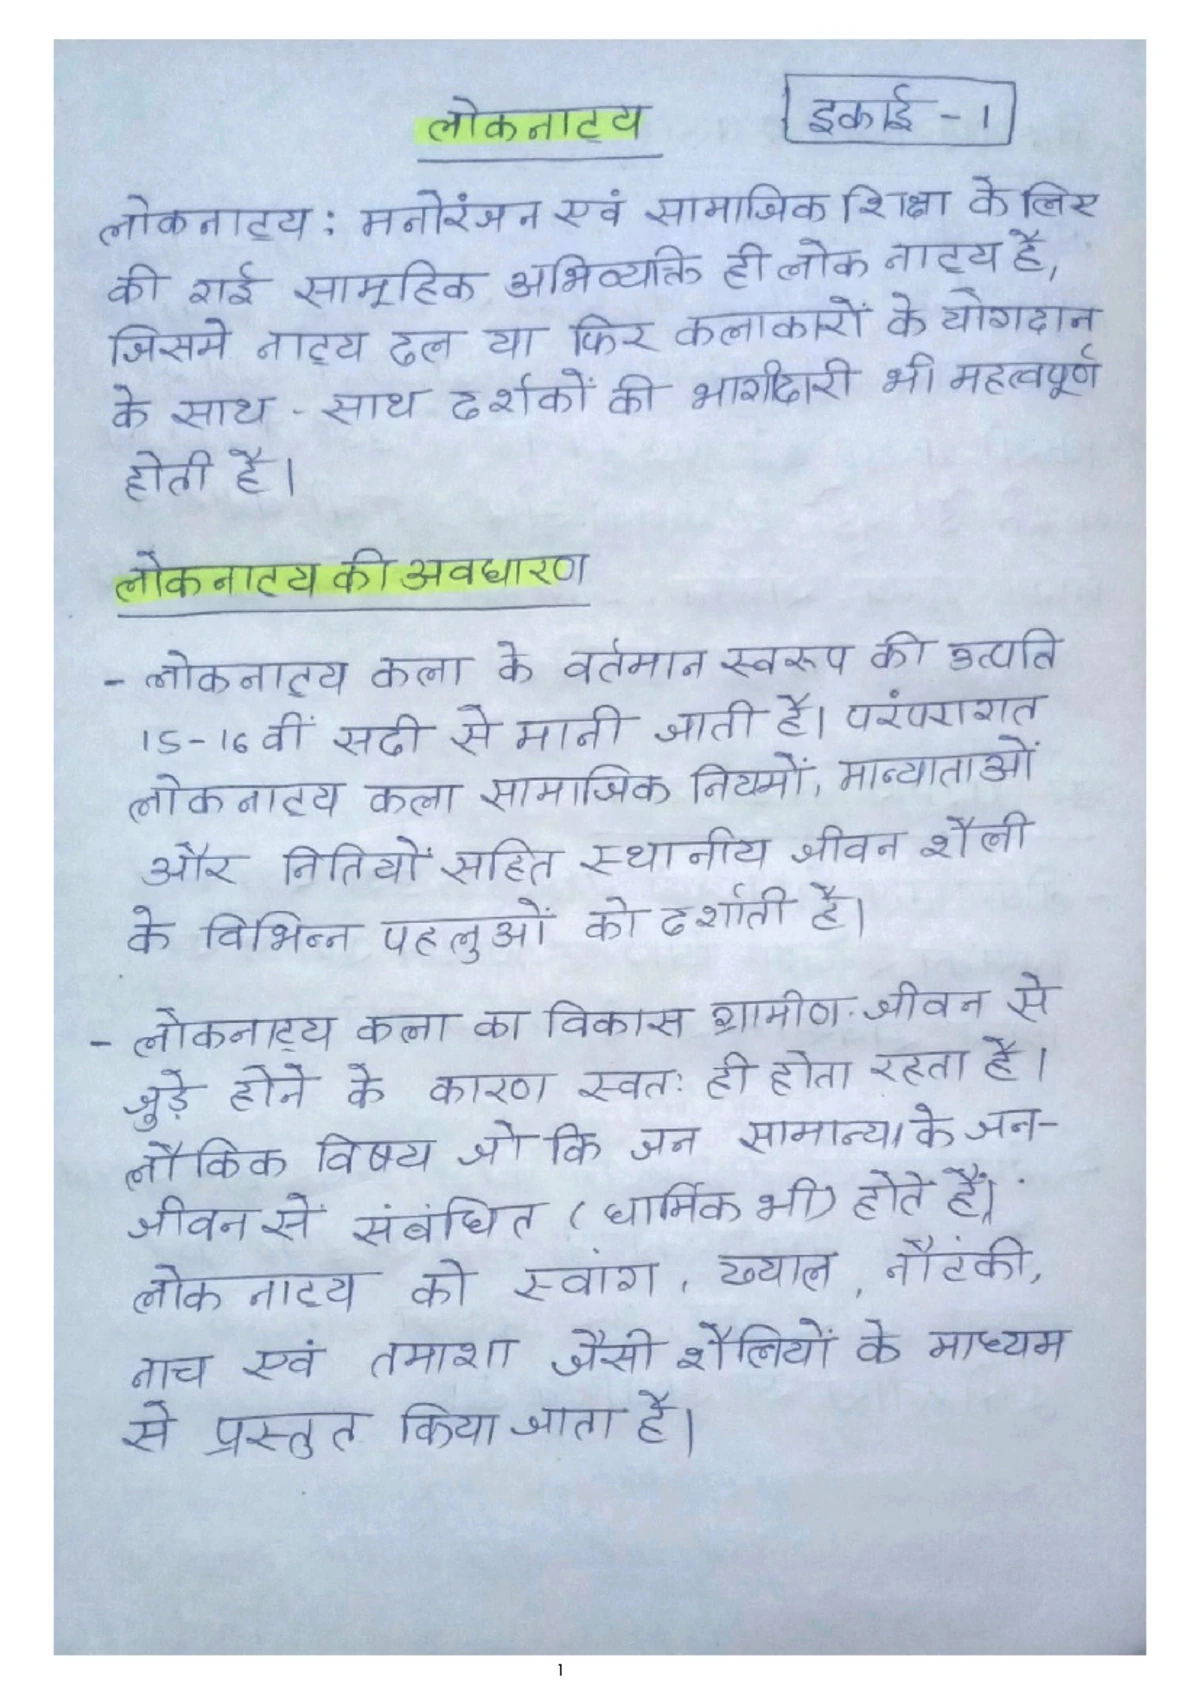 लोकनाट्य
इकाई - 1
लोकनाट्य : मनोरंजन एवं सामाजिक शिक्षा के लिए
की गई सामूहिक अभिव्यक्ति ही लोक नाट्य है,
जिसमे नाट्य दल या फिर कलाकारों के योगदान
के साथ - साथ दर्शकों की भागीदारी भी महत्वपूर्ण
होती है।
लोकनाट्य की अवधारण
- लोकनाट्य कला के वर्तमान स्वरूप की उत्पति
15-16वीं सदी से मानी जाती है। परंपरागत
लोकनाट्य कला सामाजिक नियमों, मान्याताओं
और नितियों सहित स्थानीय जीवन शैली
के विभिन्न पहलुओं को दर्शाती है।
- लोकनाट्य कला का विकास ग्रामीण जीवन से
जुड़े होने के कारण स्वतः ही होता रहता है।
लौकिक विषय जो कि जन सामान्य के जन-
जीवन सें संबंधित (धार्मिक भी) होते हैं।
लोक नाट्य को स्वांग, ख्याल, नौटंकी,
नाच एवं तमाशा जैसी शैलियों के माध्यम
से प्रस्तुत किया जाता है।
1